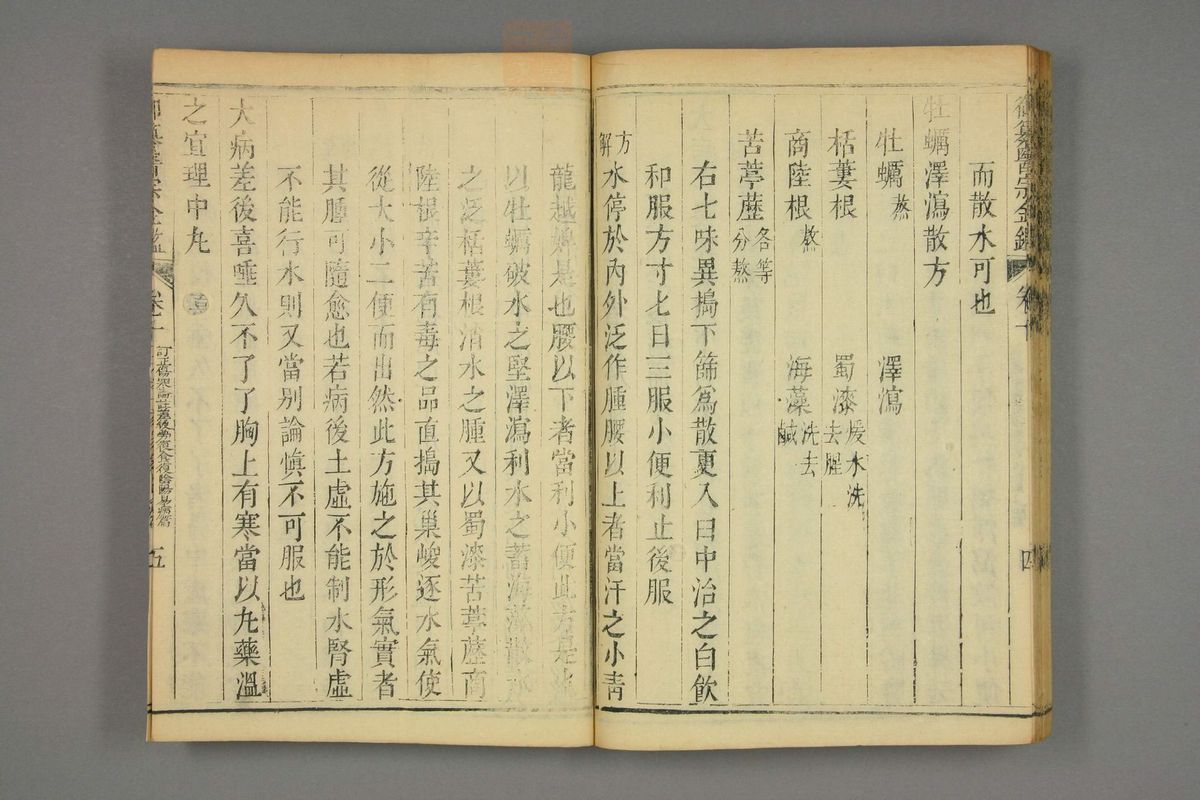 御纂醫宗金鑑 卷十 四
而散水可也
牡蠣澤瀉散方
牡蠣熬 澤瀉
栝蔞根 蜀漆煖水洗去腥
商陸根熬 海藻洗去鹹
苦葶藶各等分熬
右七味異搗下篩為散更入臼中治之白飲
和服方寸匕日三服小便利止後服
方解水停於內外泛作腫腰以上者當汗之小青
龍越婢是也腰以下者當利小便此方是也
以牡蠣破水之堅澤瀉利水之蓄海藻散水
之泛栝蔞根消水之腫又以蜀漆苦葶藶商
陸根辛苦有毒之品直搗其巢峻逐水氣使
從大小二便而出然此方施之於形氣實者
其腫可隨愈也若病後土虛不能制水腎虛
不能行水則又當別論慎不可服也
大病差後喜唾久不了了胸上有寒當以丸藥溫
之宜理中丸
御纂醫宗金鑑 卷十 訂正傷寒論註差後勞復食復陰陽易病篇 五